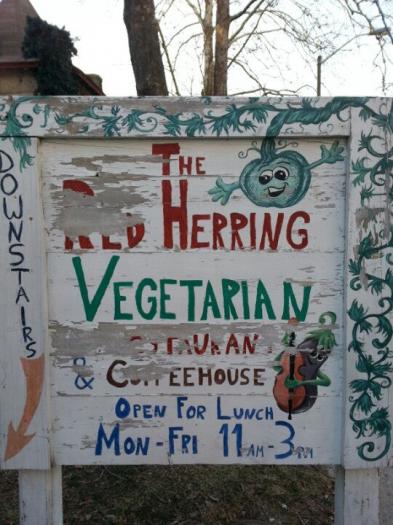 DOWNSTAIRS
THE
RED HERRING
VEGETARIAN
RESTAURANT
& COFFEEHOUSE
OPEN FOR LUNCH
MON-FRI 11AM-3PM